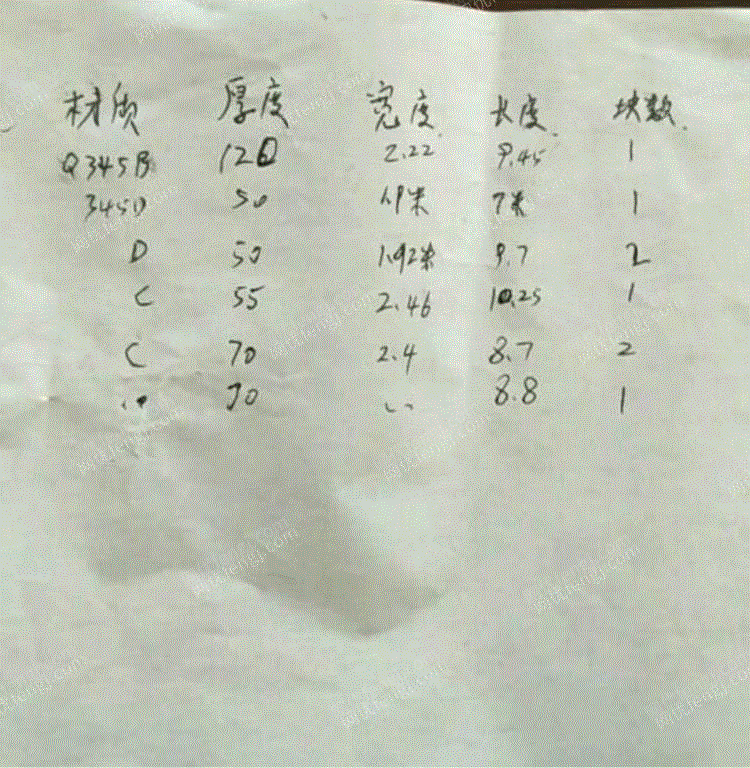 材质 厚度 宽度 长度 块数
Q345B 120 2.22 9.45 1
345D 50 1.9米 7米 1
D 50 1.92米 9.7 2
C 55 2.46 10.25 1
C 70 2.4 8.7 2
〃 70 〃 8.8 1